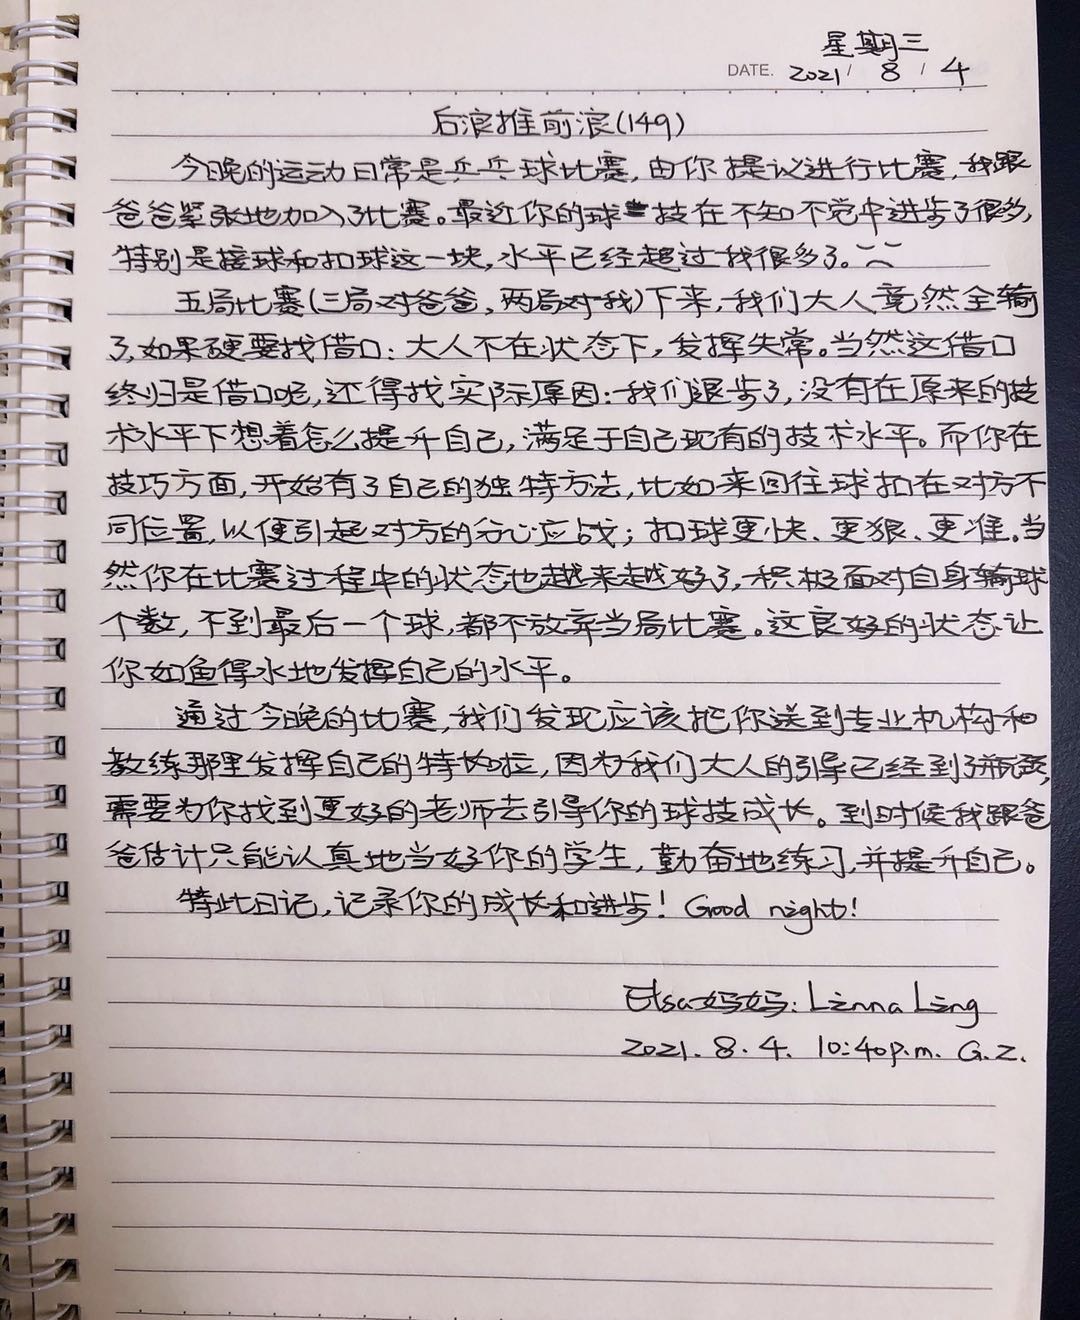 星期三
DATE. 2021 / 8 / 4
后浪推前浪(149)
今晚的运动日常是乒乓球比赛,由你提议进行比赛,我跟
爸爸紧张地加入了比赛。最近你的球技在不知不觉中进步了很多,
特别是接球和扣球这一块,水平已经超过我很多了。
五局比赛(三局对爸爸,两局对我)下来,我们大人竟然全输
了,如果硬要找借口:大人不在状态下,发挥失常。当然这借口
终归是借口呢,还得找实际原因:我们退步了,没有在原来的技
术水平下想着怎么提升自己,满足于自己现有的技术水平。而你在
技巧方面,开始有了自己的独特方法,比如来回往球扣在对方不
同位置,以便引起对方的分心应战;扣球更快、更狠、更准。当
然你在比赛过程中的状态也越来越好了,积极面对自身输球
个数,不到最后一个球,都不放弃当局比赛。这良好的状态让
你如鱼得水地发挥自己的水平。
通过今晚的比赛,我们发现应该把你送到专业机构和
教练那里发挥自己的特长啦,因为我们大人的引导已经到了瓶颈,
需要为你找到更好的老师去引导你的球技成长。到时候我跟爸
爸估计只能认真地当好你的学生,勤奋地练习,并提升自己。
特此日记,记录你的成长和进步! Good night!
Elsa妈妈: Linna Ling
2021. 8. 4. 10:40p.m. G.Z.